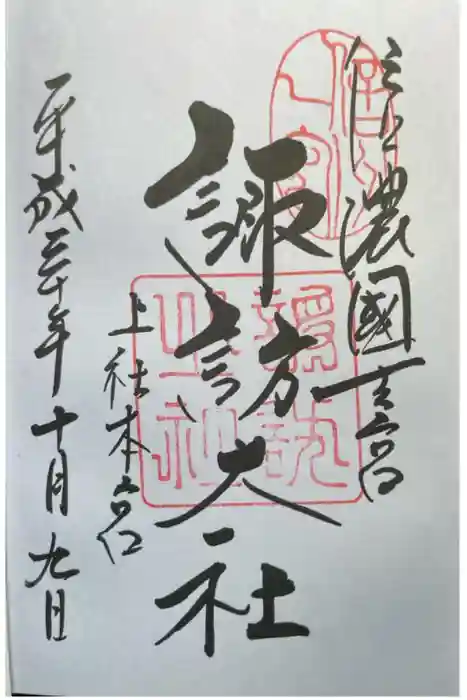 信濃國一之宮
諏訪大社
上社本宮
平成三十年十月九日